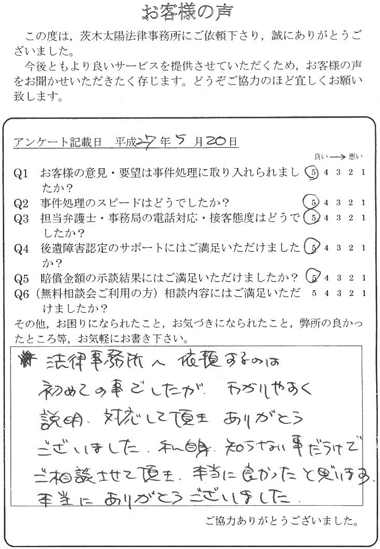 お客様の声
この度は，茨木太陽法律事務所にご依頼下さり，誠にありがとうご
ざいました。
今後ともより良いサービスを提供させていただくため，お客様の声
をお聞かせいただきたく存じます。どうぞご協力のほど宜しくお願い
致します。
アンケート記載日 平成27年5月20日
良い→悪い
Q1 お客様の意見・要望は事件処理に取り入れられまし
たか？ 5 4 3 2 1
Q2 事件処理のスピードはどうでしたか？ 5 4 3 2 1
Q3 担当弁護士・事務局の電話対応・接客態度はどうで
したか？ 5 4 3 2 1
Q4 後遺障害認定のサポートにはご満足いただけました
か？ 5 4 3 2 1
Q5 賠償金額の示談結果にはご満足いただけましたか？ 5 4 3 2 1
Q6（無料相談会ご利用の方）相談内容にはご満足いただ
けましたか？ 5 4 3 2 1
その他，お困りになられたこと，お気づきになられたこと，弊所の良かっ
たところ等，お気軽にお書き下さい。
法律事務所へ依頼するのは
初めての事でしたが、わかりやすく
説明、対応して頂き ありがとう
ございました。私自身、知らない事だらけで
ご相談させて頂き、本当に良かったと思います。
本当に ありがとうございました。
ご協力ありがとうございました。